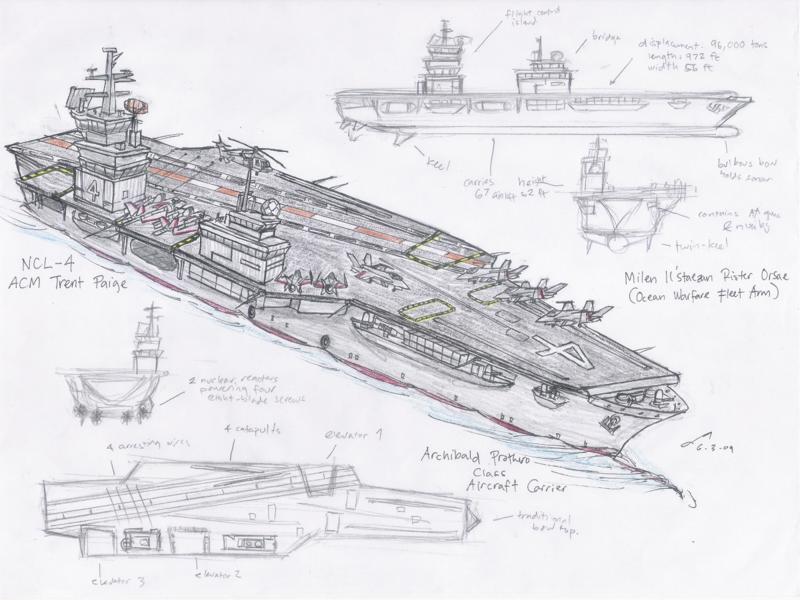 flight control
island
bridge
displacement: 96,000 tons
length: 972 ft
width 56 ft
keel
carries
height
52 ft
bulbous bow
holds sonar
contains AA guns
twin-keel
NCL-4
ACM Trent Paige
4
Milen Il'staezun Rister Orsae
(Ocean Warfare Fleet Arm)
2 nuclear reactors
powering four
eight-blade screws
4
4 arresting wires
4 catapults
elevator 1
Archibald Prothro
Class
Aircraft Carrier
6-3-09
traditional
bow top.
elevator 3
elevator 2